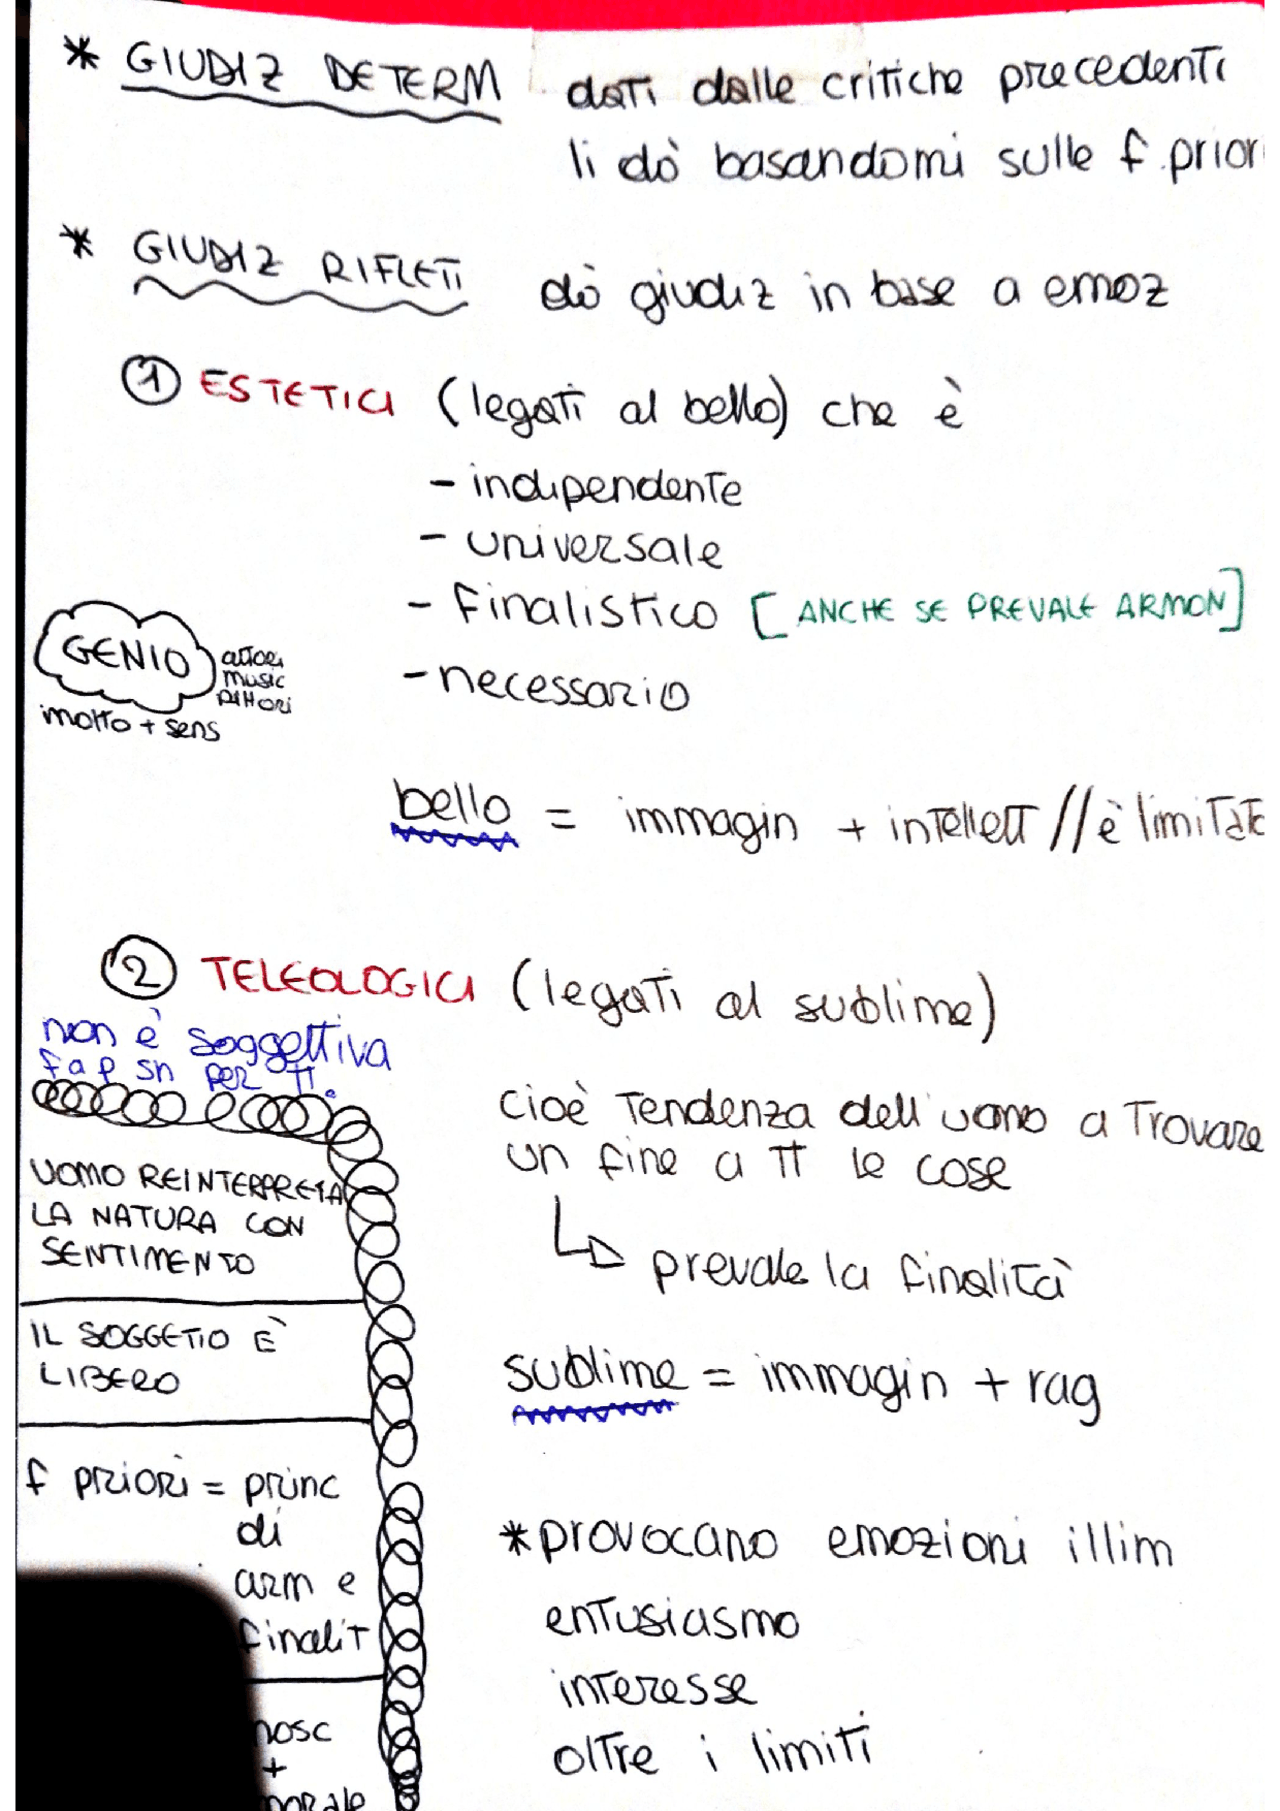 * GIUDIZ DETERM dati dalle critiche precedenti
li dò basandomi sulle f priori
* GIUDIZ RIFLETI dò giudiz in base a emoz
1 ESTETICI (legati al bello) che è
- indipendente
- universale
- Finalistico [ANCHE SE PREVALE ARMON]
- necessario
GENIO autori
music
pittori
+ sens
bello = immagin + intellett // è limitato
2 TELEOLOGICI (legati al sublime)
non è soggettiva
f a p sn per tt.
cioè tendenza dell'uomo a trovare
un fine a tt le cose
prevale la finalità
UOMO REINTERPRETA
LA NATURA CON
SENTIMENTO
IL SOGGETTO È
LIBERO
sublime = immagin + rag
f priori = princ
di
arm e
finalit
*provocano emozioni illim
entusiasmo
interesse
oltre i limiti
nosc
+
morale